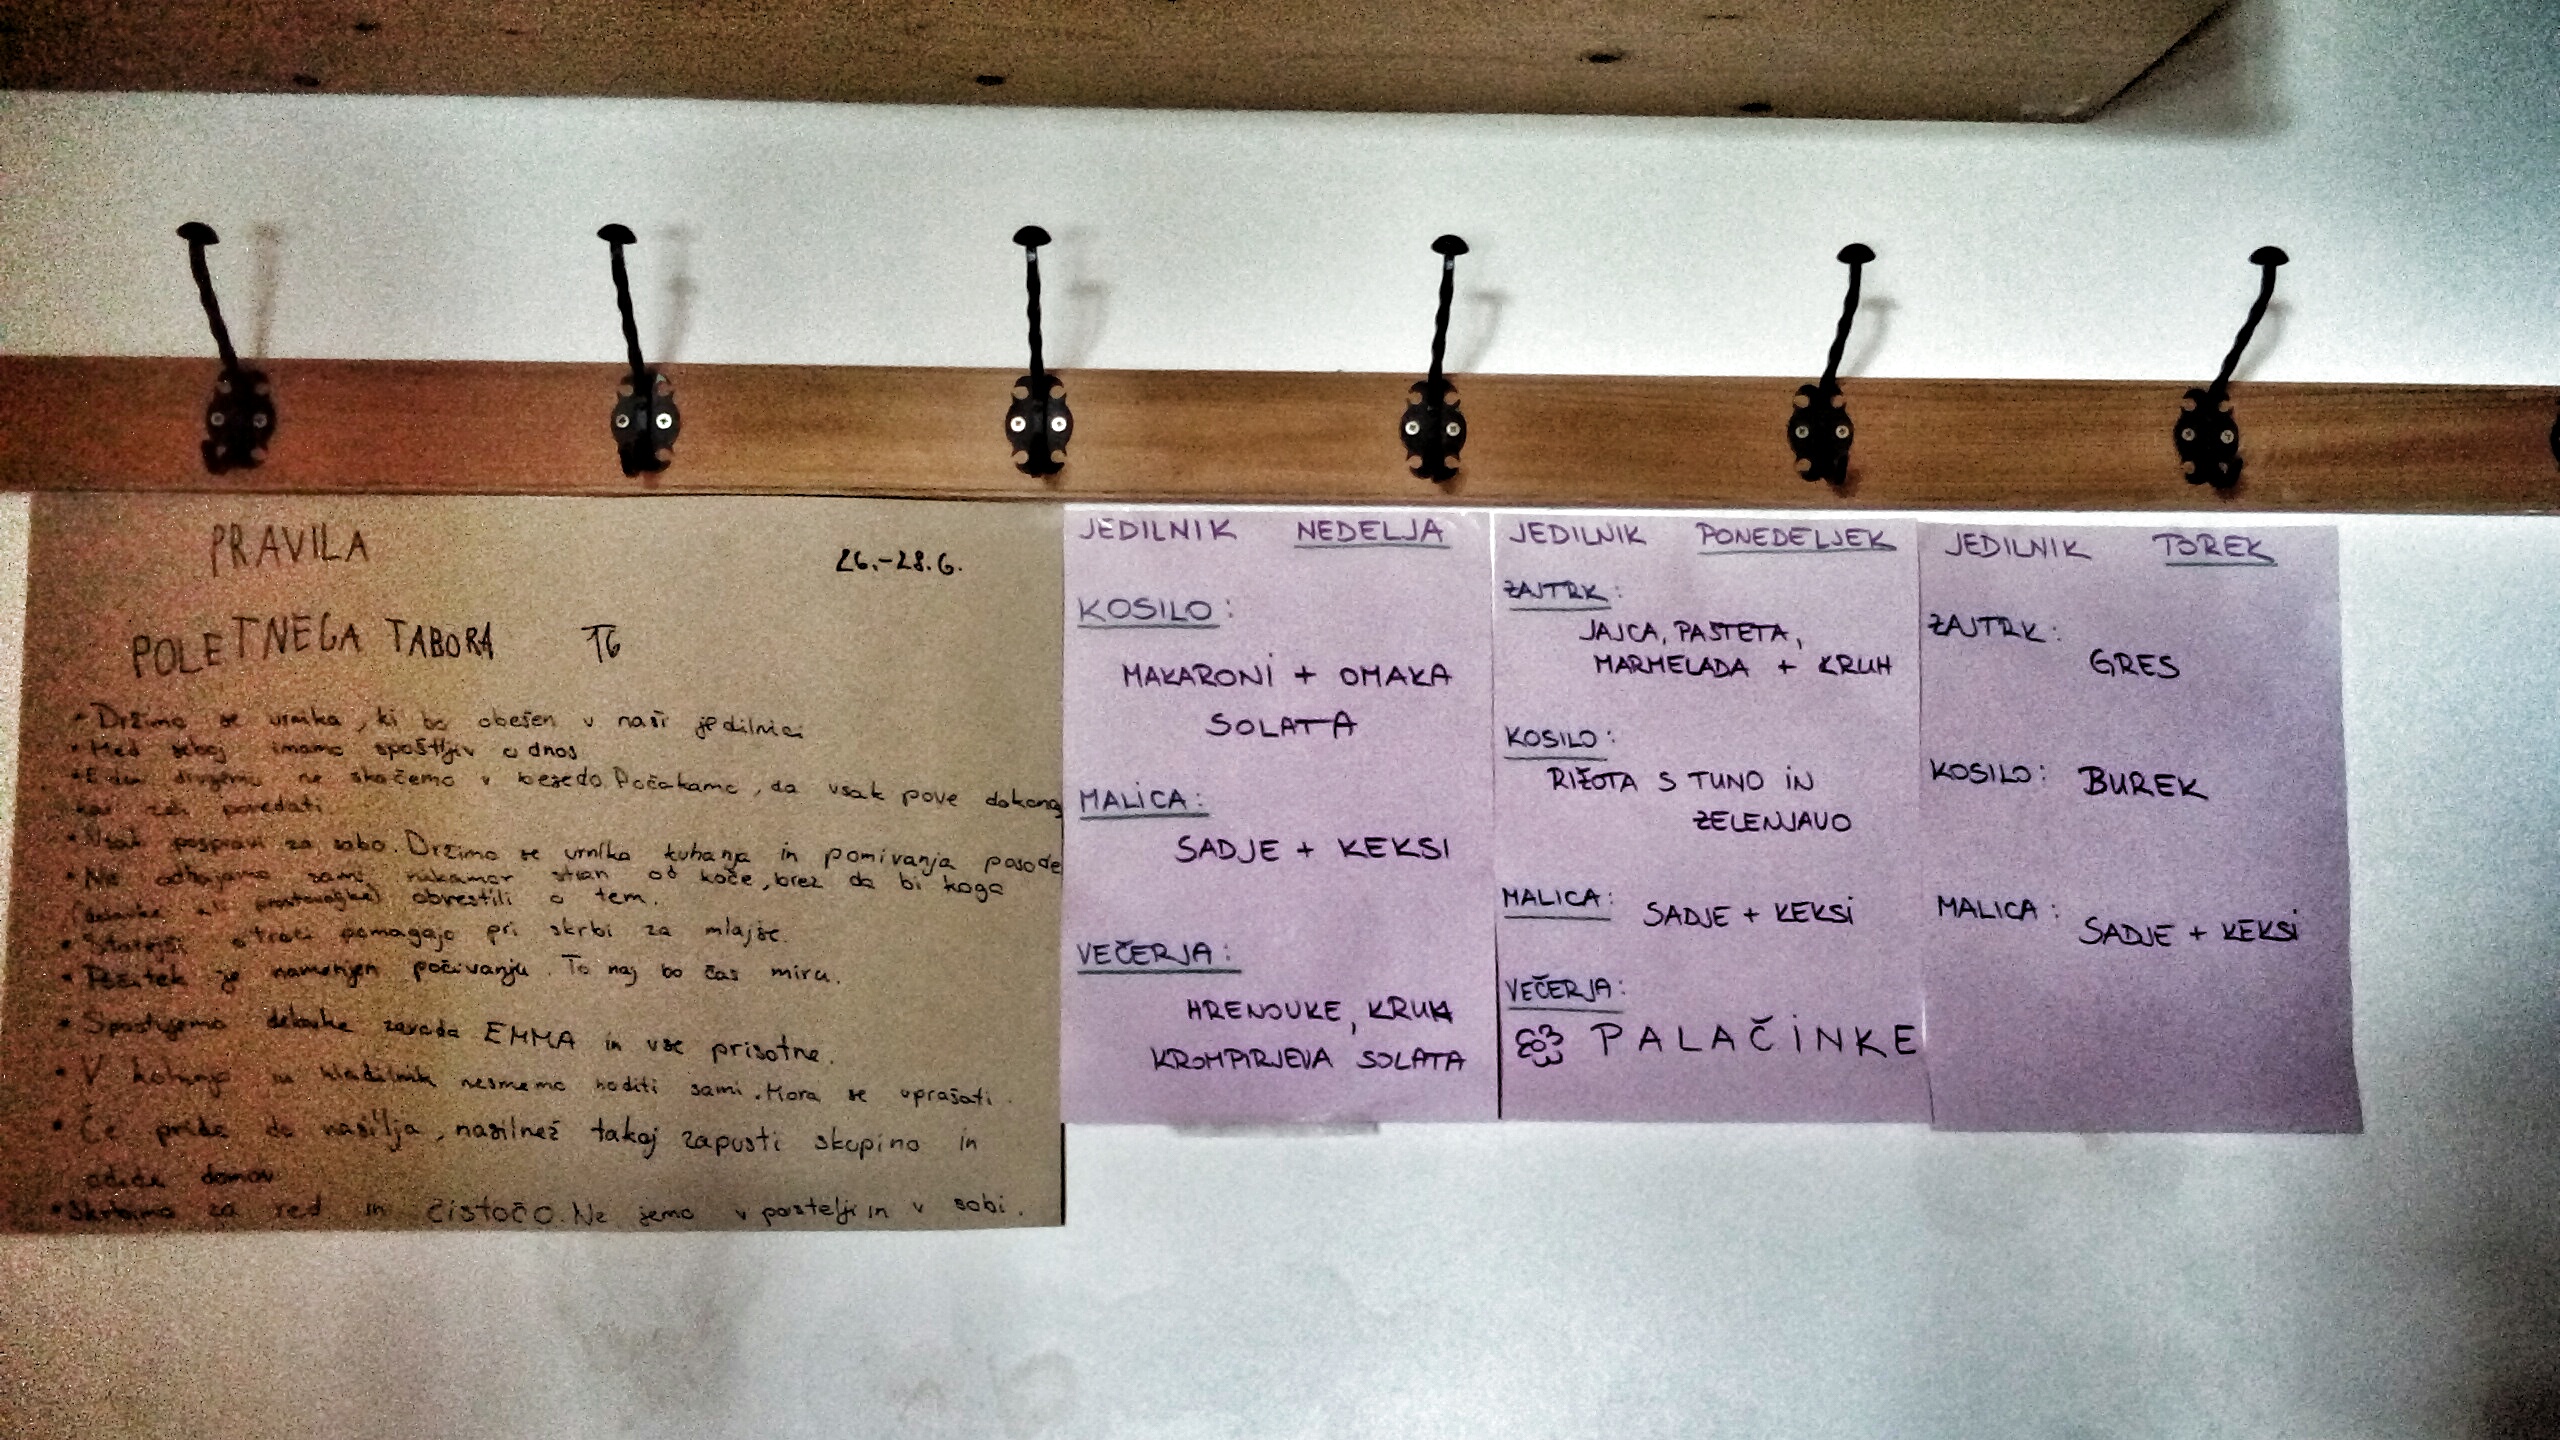 PRAVILA
26.-28.6.
POLETNEGA TABORA
• Držimo se urnika, ki bo obešen v naši jedilnici
• Med seboj imamo spoštljiv odnos
• Eden drugemu ne skačemo v besedo. Počakamo, da vsak pove dokonca
kar želi povedati
• Vsak pospravi za sabo. Držimo se urnika kuhanja in pomivanja posode
• Ne odhajamo sami nikamor stran od koče, brez da bi koga
(delavke ali prostovoljke) obvestili o tem.
• Starejši otroci pomagajo pri skrbi za mlajše.
• Počitek je namenjen počivanju. To naj bo čas miru.
• Spoštujemo delavke zavoda EMMA in vse prisotne.
• V kuhinjo in hladilnik nesmemo hoditi sami. Mora se uprašati.
• Če pride do nasilja, nasilnež takoj zapusti skupino in
odide domov
• Skrbimo za red in čistočo. Ne jemo v postelji in v sobi.
JEDILNIK NEDELJA
KOSILO:
MAKARONI + OMAKA
SOLATA
MALICA:
SADJE + KEKSI
VEČERJA:
HRENOVKE, KRUH
KROMPIRJEVA SOLATA
JEDILNIK PONEDELJEK
ZAJTRK:
JAJCA, PAŠTETA,
MARMELADA + KRUH
KOSILO:
RIŽOTA S TUNO IN
ZELENJAVO
MALICA: SADJE + KEKSI
VEČERJA:
PALAČINKE
JEDILNIK TOREK
ZAJTRK:
GRES
KOSILO: BUREK
MALICA:
SADJE + KEKSI